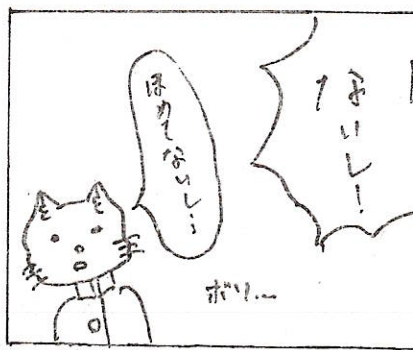 ないし!
ほめてないし…
ボソ…